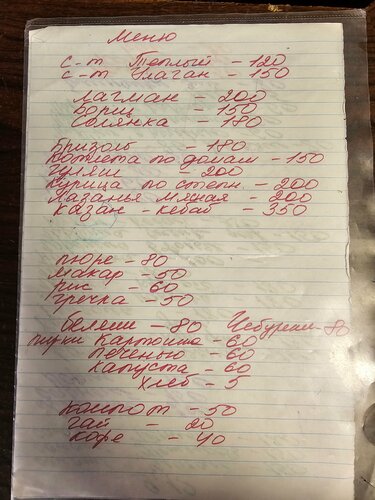 Меню
с-т Теплый - 120
с-т Улаган - 150
Лагман - 200
Борщ - 150
Солянка - 180
Бризоль - 180
Котлета по домаш - 150
Гуляш - 200
Курица по степн - 200
Лазанья мясная - 200
Казан - кебаб - 350
пюре - 80
макар - 50
рис - 60
гречка - 50
Беляши - 80 Чебуреки - 80
пирожки Картошка - 60
печенью - 60
капуста - 60
хлеб - 5
Компот - 50
чай - 20
кофе - 40